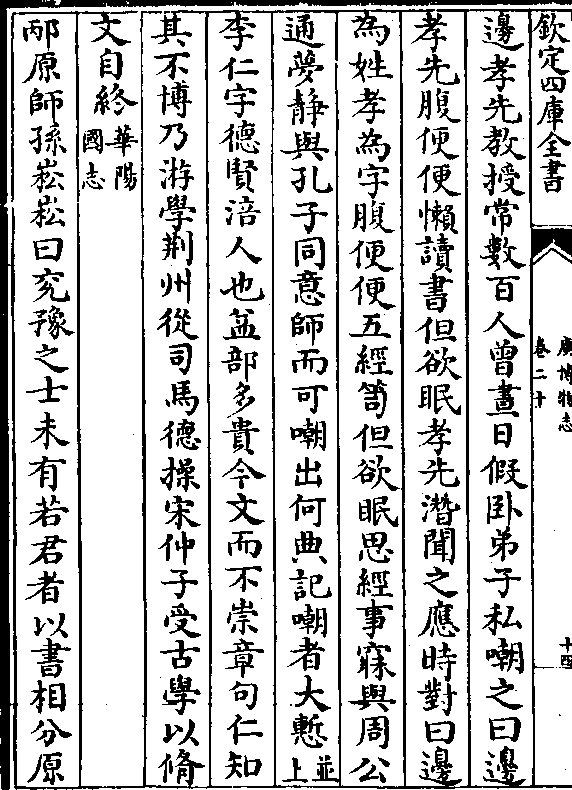 欽定四庫全書
廣博物志
卷二十
十四
邊孝先教授常數百人曾晝日假卧弟子私嘲之曰邊
孝先腹便便懶讀書但欲眠孝先潛聞之應時對曰邊
為姓孝為字腹便便五經笥但欲眠思經事寐與周公
通夢静與孔子同意師而可嘲出何典記嘲者大慙並上
李仁字德賢涪人也益部多貴今文而不崇章句仁知
其不博乃游學荆州從司馬德操宋仲子受古學以脩
文自終華陽國志
邴原師孫崧崧曰兖豫之士未有若君者以書相分原